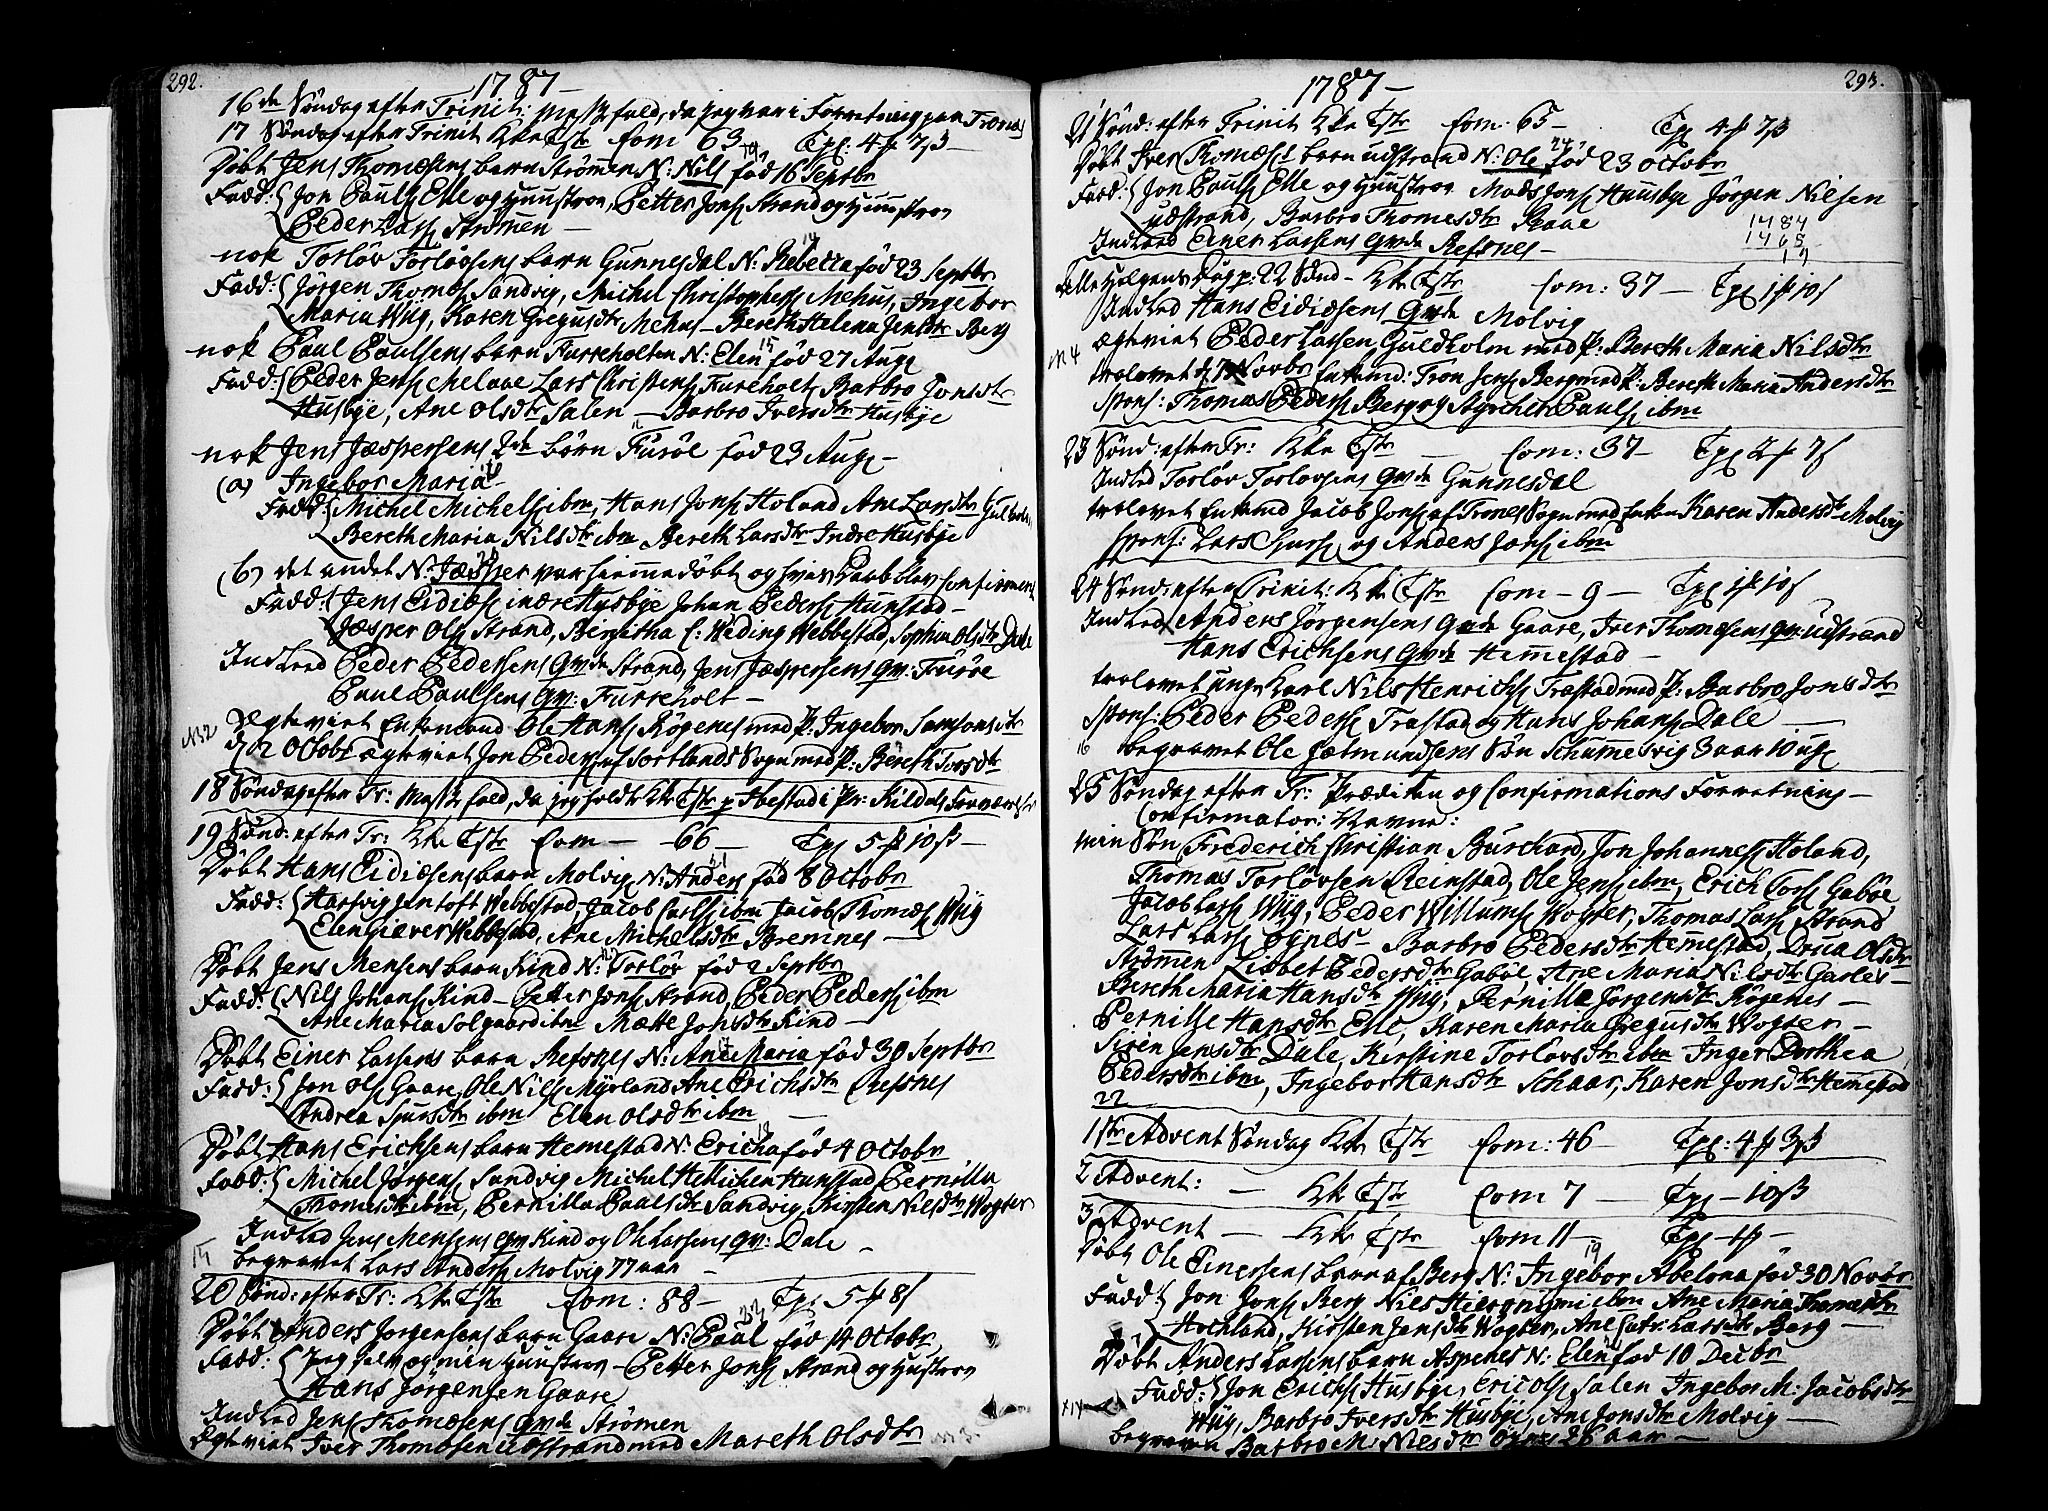 292.
1787 —
16de Søndag efter Trinit: Messefald, da jeg var i Forretning paa Trones
17 Søndag efter Trinit Kke Tstr Com 63 Tpf: 4 ß 7 β —
Døbt Jens Thomæsens barn Strømen N: Nils fød 16 Septbr
Fadd: Jon Paulss Elle og Hunstrou, Petter Jonss Strand og Hunstrou
Peder Larss Strömen —
nok Torløv Torløvsens barn Gunnesdal N: Rebecca fød 23 Septbr
Fadd: Jörgen Thomess Sandvig, Michel Christophers Mehus, Ingebor
Maria Wiig, Karen Gregusdtr Mehus — Bereth Helena Jensdtr Berg
nok Paul Paulsens barn Furreholten N: Elen fød 27 Aug
Fadd: Peder Jenss Melaae Lars Christenss Furreholt Barbro Jonsdtr
Husbye, Ane Olsdtr Salen — Barbro Iversdtr Husbye
nok Jens Jæspersens 2de børn Furøe fød 23 Aug —
(a) Ingebor Maria
Fadd: Michel Michelss ibm, Hans Jonss Holand Ane Larsdtr Gulhol
Bereth Maria Nilsdtr ibm Bereth Larsdtr Indre Husbye
(b) det andet N: Jæsper var hiemmedøbt og hvis Daab blev Confirmeret
Fadd: Jens Eidiess indre Hysbye Johan Pederss Hunstad —
Jæsper Olss Strand, Birgitha C: Weding Webbestad, Sophia Olsdtr Dale
Indled Peder Pedersens Qvde Strand, Jens Jæspersens Qv: Furøe
Paul Paulsens Qv: Furreholt —
N 2 Ægteviet Enkemand Ole Hanss Kögenes med P: Ingebor Samsonsdtr
d 2 Octobr ægteviet Jon Pederss af Sortlands Sogn med P: Bereth Torsdtr
18 Søndag efter Tr: Messefald, da jeg holdt Kke Tstr p Ibestad i Pr: Kildals Fraværelse
19 Sønd: efter Tr: Kke Tstr Com — 66 — Tpf 5 ß 10 β —
Døbt Hans Eidiesens barn Molvig N: Anders fød 8 Octobr
Fadd: Hartvig Jentoft Webbestad, Jacob Carlss ibm Jacob Thomess Wiig
Elen Giæver Webbestad, Ane Michelsdtr Bremnes —
Døbt Jens Mensens barn Kind N: Torløv fød 2 Septbr
Fadd: Nils Johanss Kind — Petter Jonss Strand, Peder Pederss ibm
Ane Maria Solgaard ibm Mætte Jonsdtr Kind —
Døbt Einer Larsens barn Refsnes N: Ane Maria fød 30 Septbr
Fadd: Jon Olss Gaare, Ole Nilss Myrland Ane Erichsdtr Refsnes
Andrea Sjursdtr ibm Elen Olsdtr ibm —
Døbt Hans Erichsens barn Hemestad N: Ericha fød 4 Octobr
Fadd: Michel Jørgenss Sandvig Michel Hellichen Hunstad Pernilla
Thomesdtr ibm, Pernilla Paalsdtr Sandvig, Kirsten Nilsdtr Wogter
Indled Jens Mensens Qv Kind og Ole Larsens Qv: Dale —
15 begravet Lars Anderss Molvig 77 aar —
20 Sønd: efter Tr: Kke Tstr Com: 88 — Tpf 5 ß 8 β
Døbt Anders Jørgensens barn Gaare N: Paul fød 14 Octobr
Fadd: Jeg selv og min Hunstrou — Petter Jonss Strand og Hustrou
Hans Jørgensen Gaare
Indled Jens Thomæsens Qvde Strømen
Ægteviet Iver Thomesen Udstrand med Mareth Olsdtr N 3.
293.
1787 —
21 Sønd: efter Trinit Kke Tstr Com: 65 — Tpf 4 ß 7 β
Døbt Iver Thomæss barn udstrand N: Ole fød 23 Octobr
Fadd: Jon Paulss Elle og Hunstrou Mads Jonss Huusbye Jörgen Nilsen
udstrand, Barbro Thomesdtr Raae 1784
Indled Einer Larsens Qvde Refsnes — 1765
19
Alle Helgens Dag p: 22 Sønd — Kke Tstr Com: 37 — Tpf 1 ß 10 β
Indled Hans Eidiesens Qvde Molvig
N 4 ægteviet Peder Larsen Guldholm med P: Bereth Maria Nilsdtr
trolovet d 7 Novbr Enkemd: Tron Jenss Berg med P: Bereth Maria Andersdtr
Spons: Thomas Pederss Berg og Pauls ibm
23 Sønd: efter Tr: Kke Tstr — Com: 37 — Tpf 2 ß 7 β
Indled Torløv Torløvsens Qvde Gunnesdal
trolovet Enkemd Jacob Jonss af Trones Sogn med Enken Karen Andersdtr Molvig
Spons: Lars Sjurss og Anders Jonss ibm
24 Sønd: efter Trinit: Kke Tstr Com — 9 — Tpf 1 ß 10 β
Indled Anders Jørgensens Qvde Gaare, Iver Thomesens Qv: Udstrand
Hans Erichsens Qvde Hemestad —
trolovet unge Karl Nils Henrichss Træstad med P: Barbro Jonsdtr
Spons: Peder Pederss Trastad og Hans Johanss Dale —
16 begravet Ole Jetmundsens Søn Schumelsvig 3 aar 10 ug
25 Søndag efter Tr: Prædiken og Confirmations Forretning —
Confirmator: Navne:
min Søn Frederich Christian Burchard, Jon Johanness Holand,
Thomas Torløvsen Reinstad, Ole Jenss ibm, Erich Torss Gabøe
Jacob Larss Wiig, Peder Willumss Wogter, Thomas Larss Strand
Lars Larss Øynes — Barbro Pedersdtr Hemmestad, Drua Olsdtr
Strömen Lisbet Pedersdtr Gabøe, Ane Maria Nilsdtr Garles —
Bereth Maria Hansdtr Wiig, Pernille Jørgensdtr Kögenes —
Pernille Hansdtr Elle, Karen Maria Gregusdtr Wogter —
Siren Jensdtr Dale, Kirstine Torløvsdtr ibm Inger Dorthea
Pedersdtr ibm, Ingebor Hansdtr Schaar, Karen Jonsdtr Hemestad
22
1ste Advent Søndag Kke Tstr Com: 46 — Tpf: 4 ß 3 β
2 Advent: — Kke Tstr Com 7 — Tpf — 10 β
3 Advent — Kke Tstr Com 11 — Tpf — 1 ß —
Døbt Ole Einersens barn af Berg N: Ingebor Abelona fød 30 Novbr
Fadd: Jon Jonss Berg Niels Hieronymi ibm Ane Maria Thomesdtr
Hochland, Kirsten Jensdtr Wogter, Ane Catr: Larsdtr Berg —
Døbt Anders Larsens barn Aspenes N: Elen fød 10 Decbr
Fadd: Jon Erichss Husbye, Eric Olss Salen Ingebor M: Jacobsdtr
Wiig, Barbro Iversdtr Husbye, Ane Jonsdtr Molvig —
begraven Barbro M: Nilsdtr Øynes 26 aar —